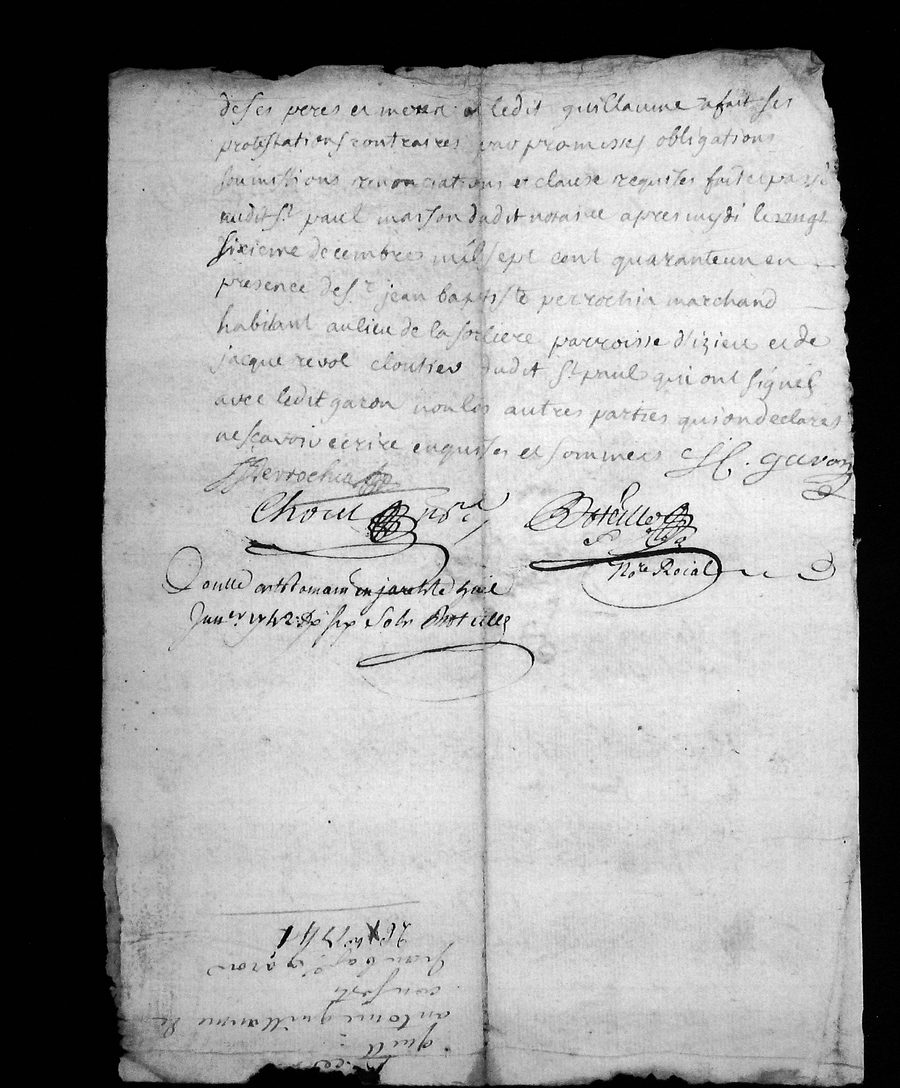 de ses peres et mere et ledit guillaume a fait ses
protestations contraires par promesses obligations
soumissions renonciations et clause requises fait et passé
audit st. paul maison dudit notaire apres mydi le vingt
sixieme decembres mil sept cent quarante un en
presence de sr. jean baptiste perrochia marchand
habitant au lieu de la sorliere parroisse d'izieu et de
jacque revol cloutier dudit st. paul qui ont signés
avec ledit garon non les autres parties qui on declarés
ne scavoir ecrire enquises et sommées JB. garon
Perrochia
Chorel
Boteille
Nore. Roial
en jarest le huit
Janer. 1742 sols Boteille
26 Xbre. 1741
Jean Bapt. garon
contre
antoine guillaume
guill